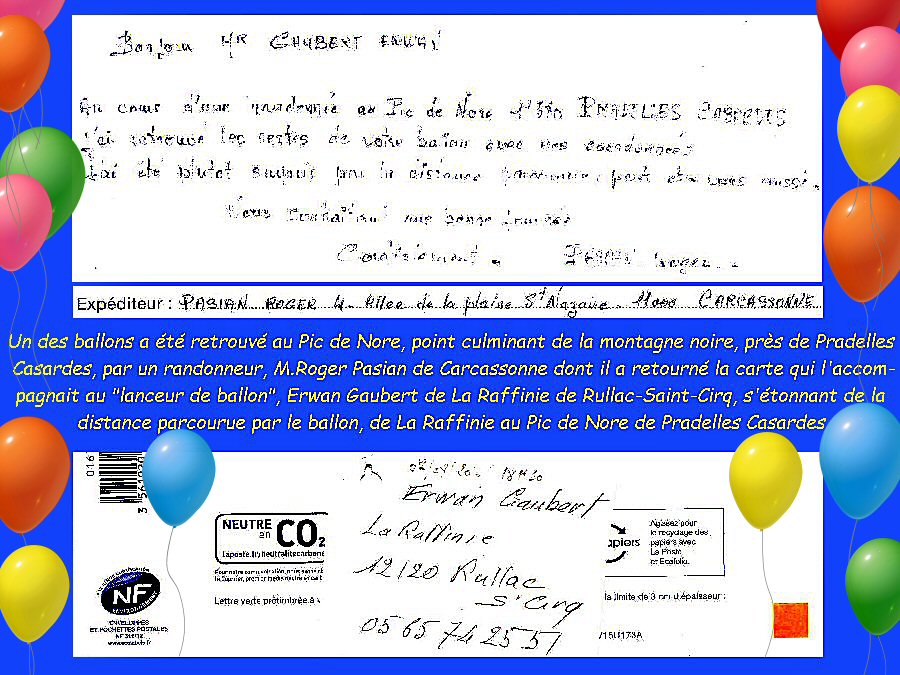 Bonjour Mr GAUBERT ERWAN
Au cours d'une randonnée au Pic de Nore PRADELLES CABARDES
j'ai retrouvé les restes de votre ballon avec vos coordonnées
J'ai été plutot surpris par la distance parcourue. peut etre vous aussi.
Vous souhaitant une bonne journée
Cordialement. PASIAN Roger.
Expéditeur : PASIAN ROGER 4 Allee de la plaine St Nazaire. 11000 CARCASSONNE
Un des ballons a été retrouvé au Pic de Nore, point culminant de la montagne noire, près de Pradelles
Casardes, par un randonneur, M.Roger Pasian de Carcassonne dont il a retourné la carte qui l'accom-
pagnait au "lanceur de ballon", Erwan Gaubert de La Raffinie de Rullac-Saint-Cirq, s'étonnant de la
distance parcourue par le ballon, de La Raffinie au Pic de Nore de Pradelles Casardes
016
18H20
Erwan Gaubert
La Raffinie
12120 Rullac
St Cirq
05 65 74 25 51
NEUTRE
en CO₂
laposte.fr/neutralitecarbone
Lettre verte prétimbrée à
NF
ENVIRONNEMENT
ENVELOPPES
ET POCHETTES POSTALES
apiers
Agissez pour
le recyclage des
papiers avec
La Poste
et Ecofolio.
la limite de 3 cm d'épaisseur :
/15U173A